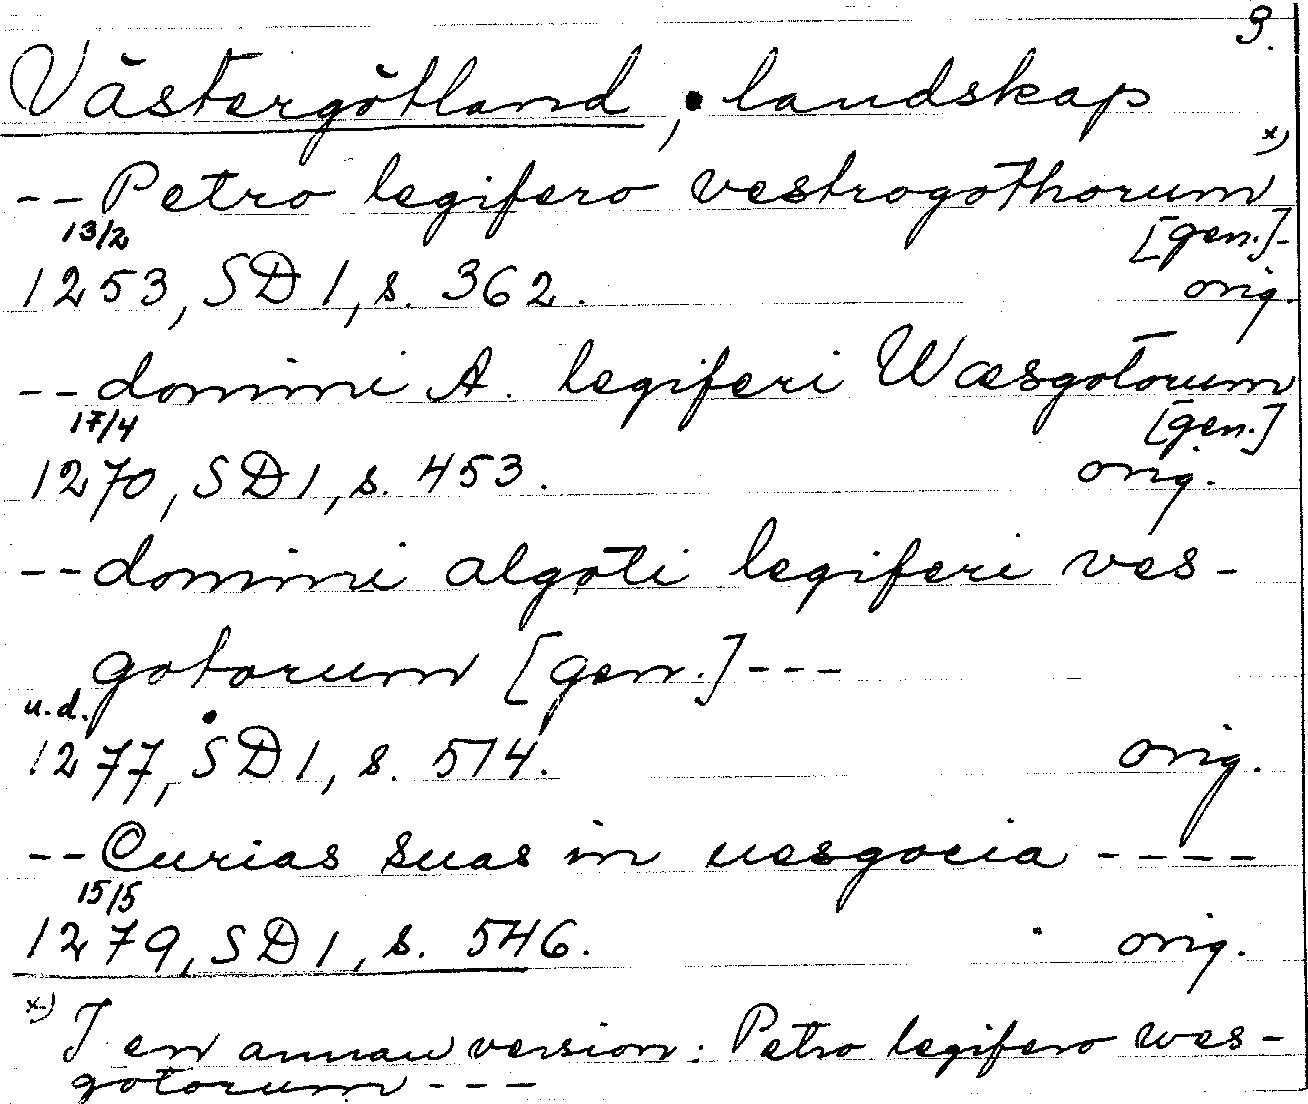 9.
Västergötland, landskap
x)
--Petro legifero vestrogothorum
13/2 [gen.]-
1253, SD 1, s. 362. orig.
--domini A. legiferi Wæsgotorum
17/4 [gen.]
1270, SD 1, s. 453. orig.
--domini algoti legiferi ves-
gotorum [gen.]---
u.d.
1277, SD 1, s. 514. orig.
--Curias suas in uesgocia ----
15/5
1279, SD 1, s. 546. orig.
x) I en annan version: Petro legifero wes-
gotorum ---